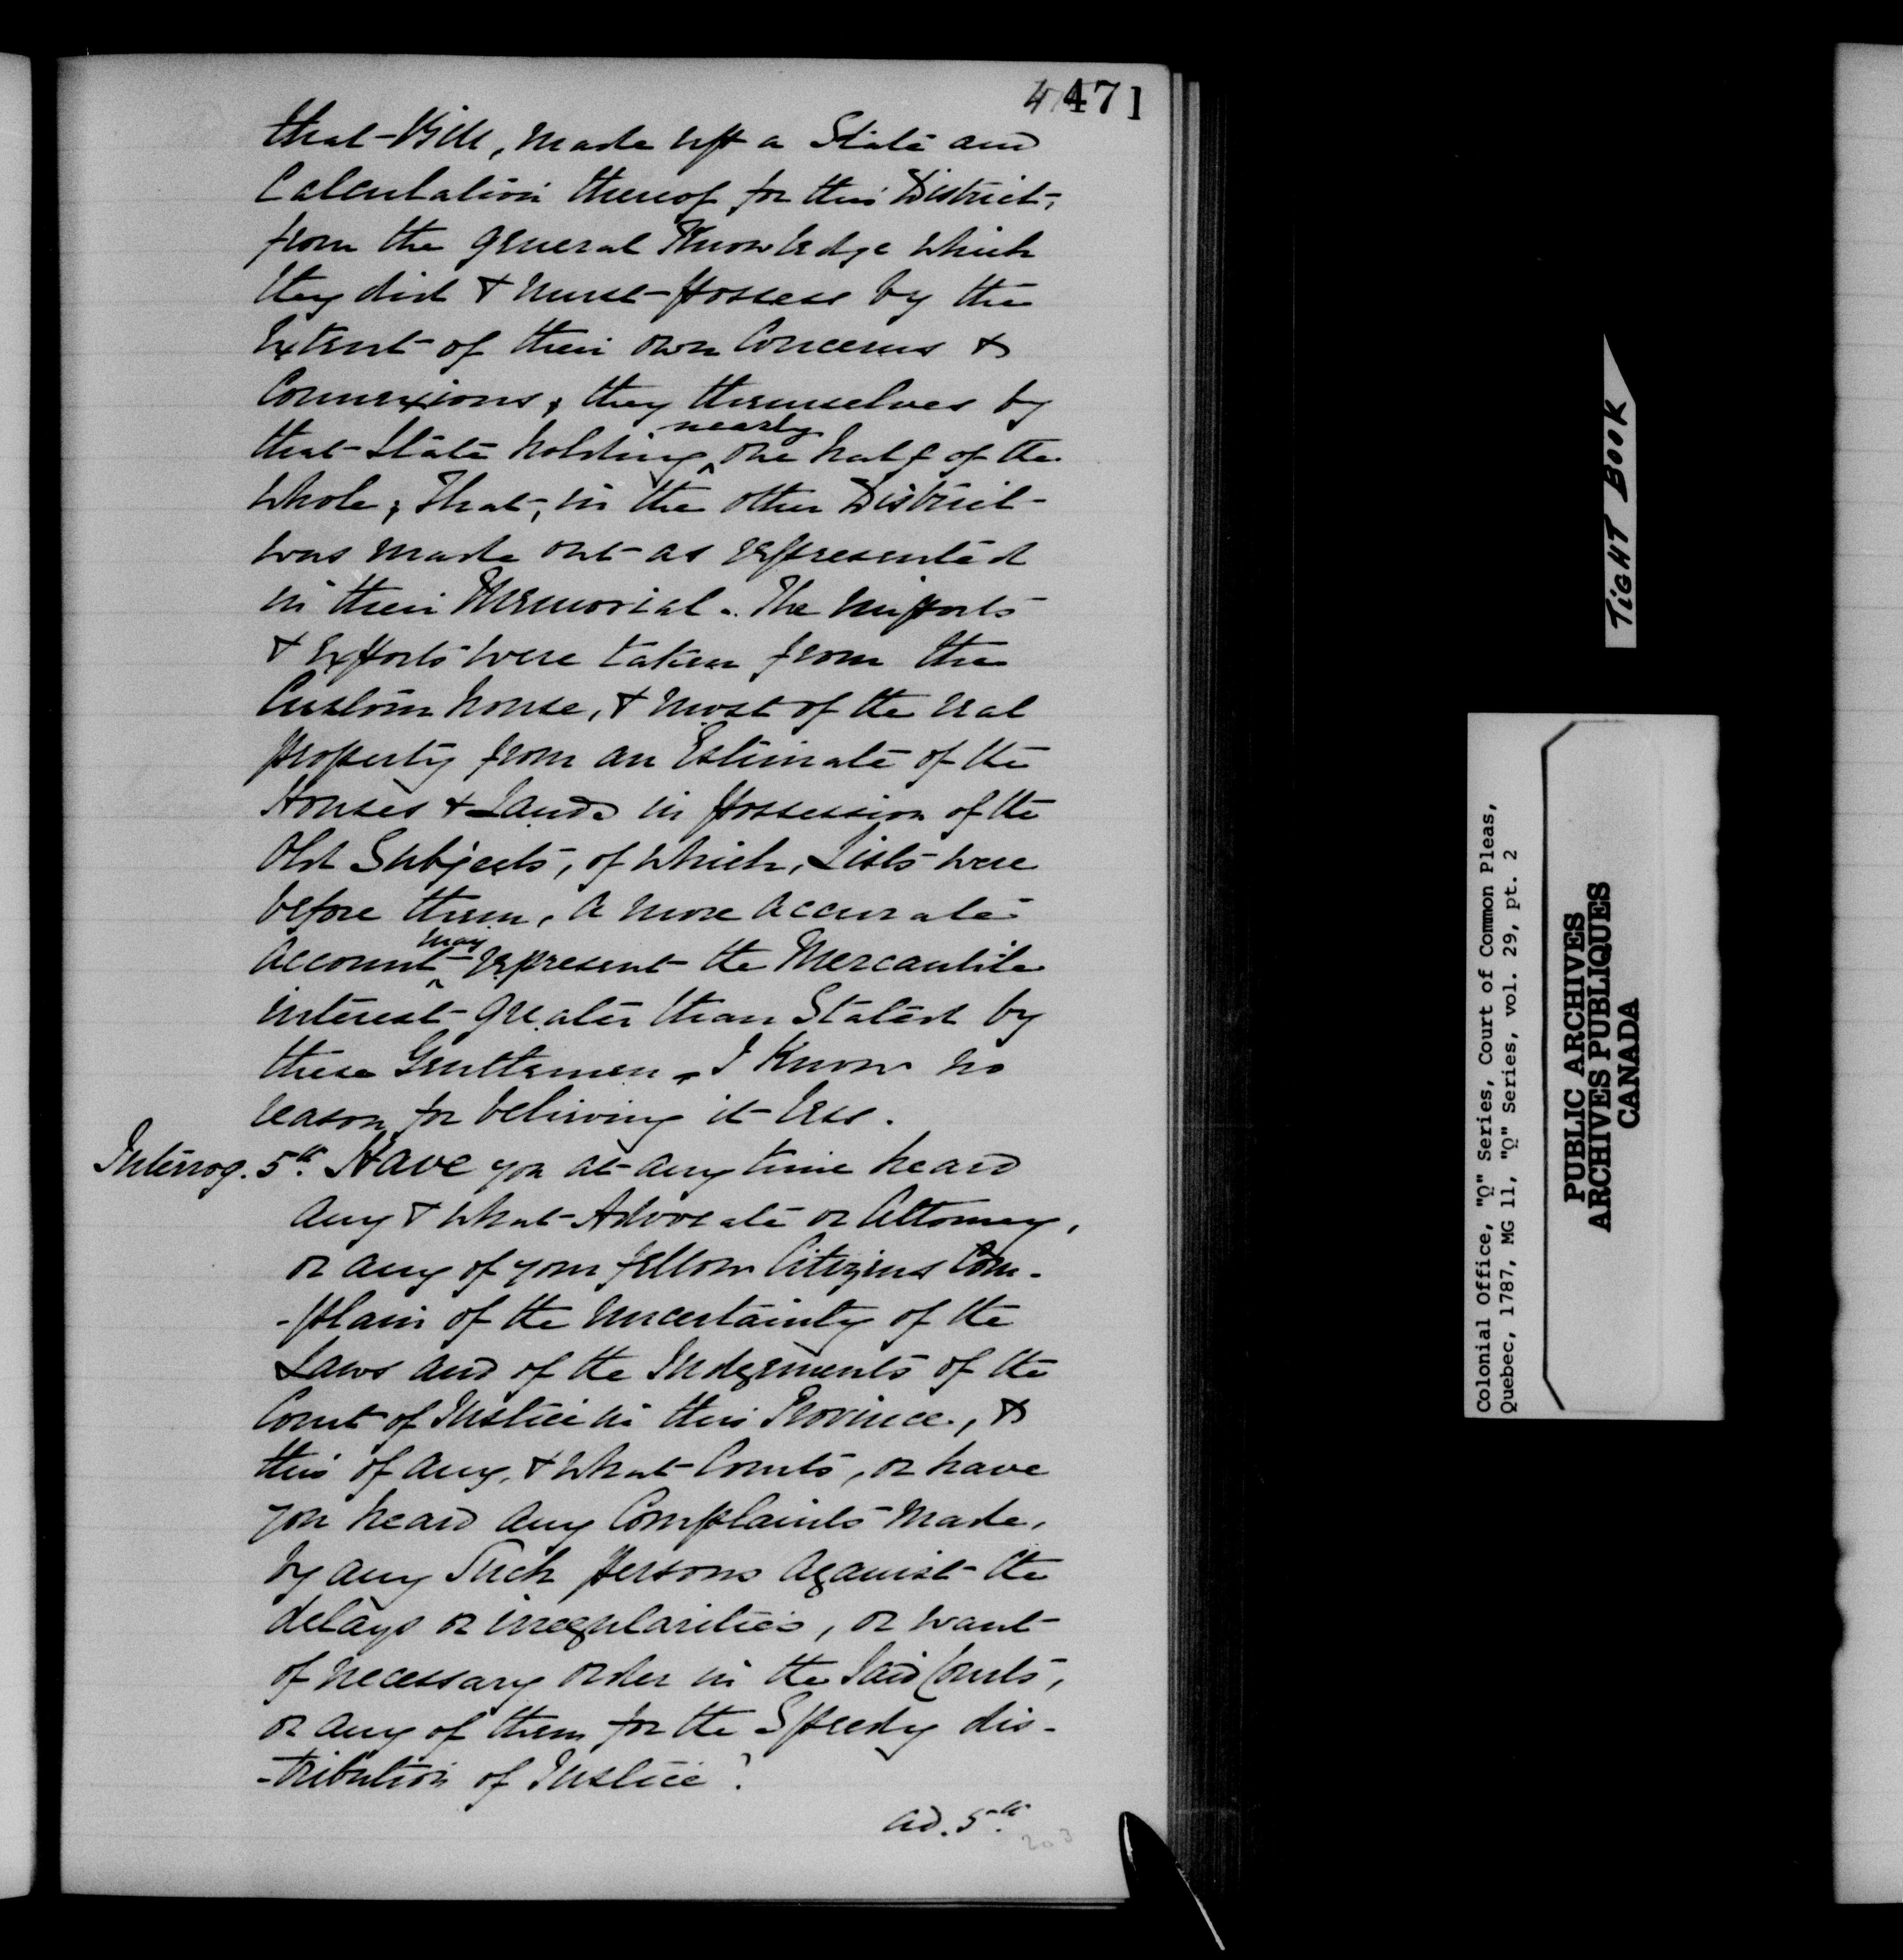 4 471
that Bill, made up a State and
Calculation thereof for this District,
from the general Knowledge which
they did & must possess by the
Extent of their own Concerns &
Connexions, they themselves by
that State holding ^nearly one half of the
whole; That, in the other District
was made out as represented
in their Memorial. The imports
& Exports were taken from the
Custom house, & most of the real
property from an Estimate of the
Houses & Lands in possession of the
Old Subjects, of which, Lists were
before them, a more accurate
account ^may represent the Mercantile
interest greater than Stated by
these Gentlemen, I Know no
reason for believing it less.
Interrog. 5th. Have you at any time heard
any & what Advocate or Attorney,
or any of your fellow Citizens Com-
-plain of the uncertainty of the
Laws and of the Judgements of the
Court of Justice in this Province, &
this of any, & what Courts, or have
you heard any Complaints made,
by any Such persons against the
delays or irregularities, or want
of necessary order in the said Courts,
or any of them for the Speedy dis-
-tribution of Justice?
ad. 5th.
203
TIGHT BOOK
Colonial Office, "Q" Series, Court of Common Pleas,
Quebec, 1787, MG 11, "Q" Series, vol. 29, pt. 2
PUBLIC ARCHIVES
ARCHIVES PUBLIQUES
CANADA